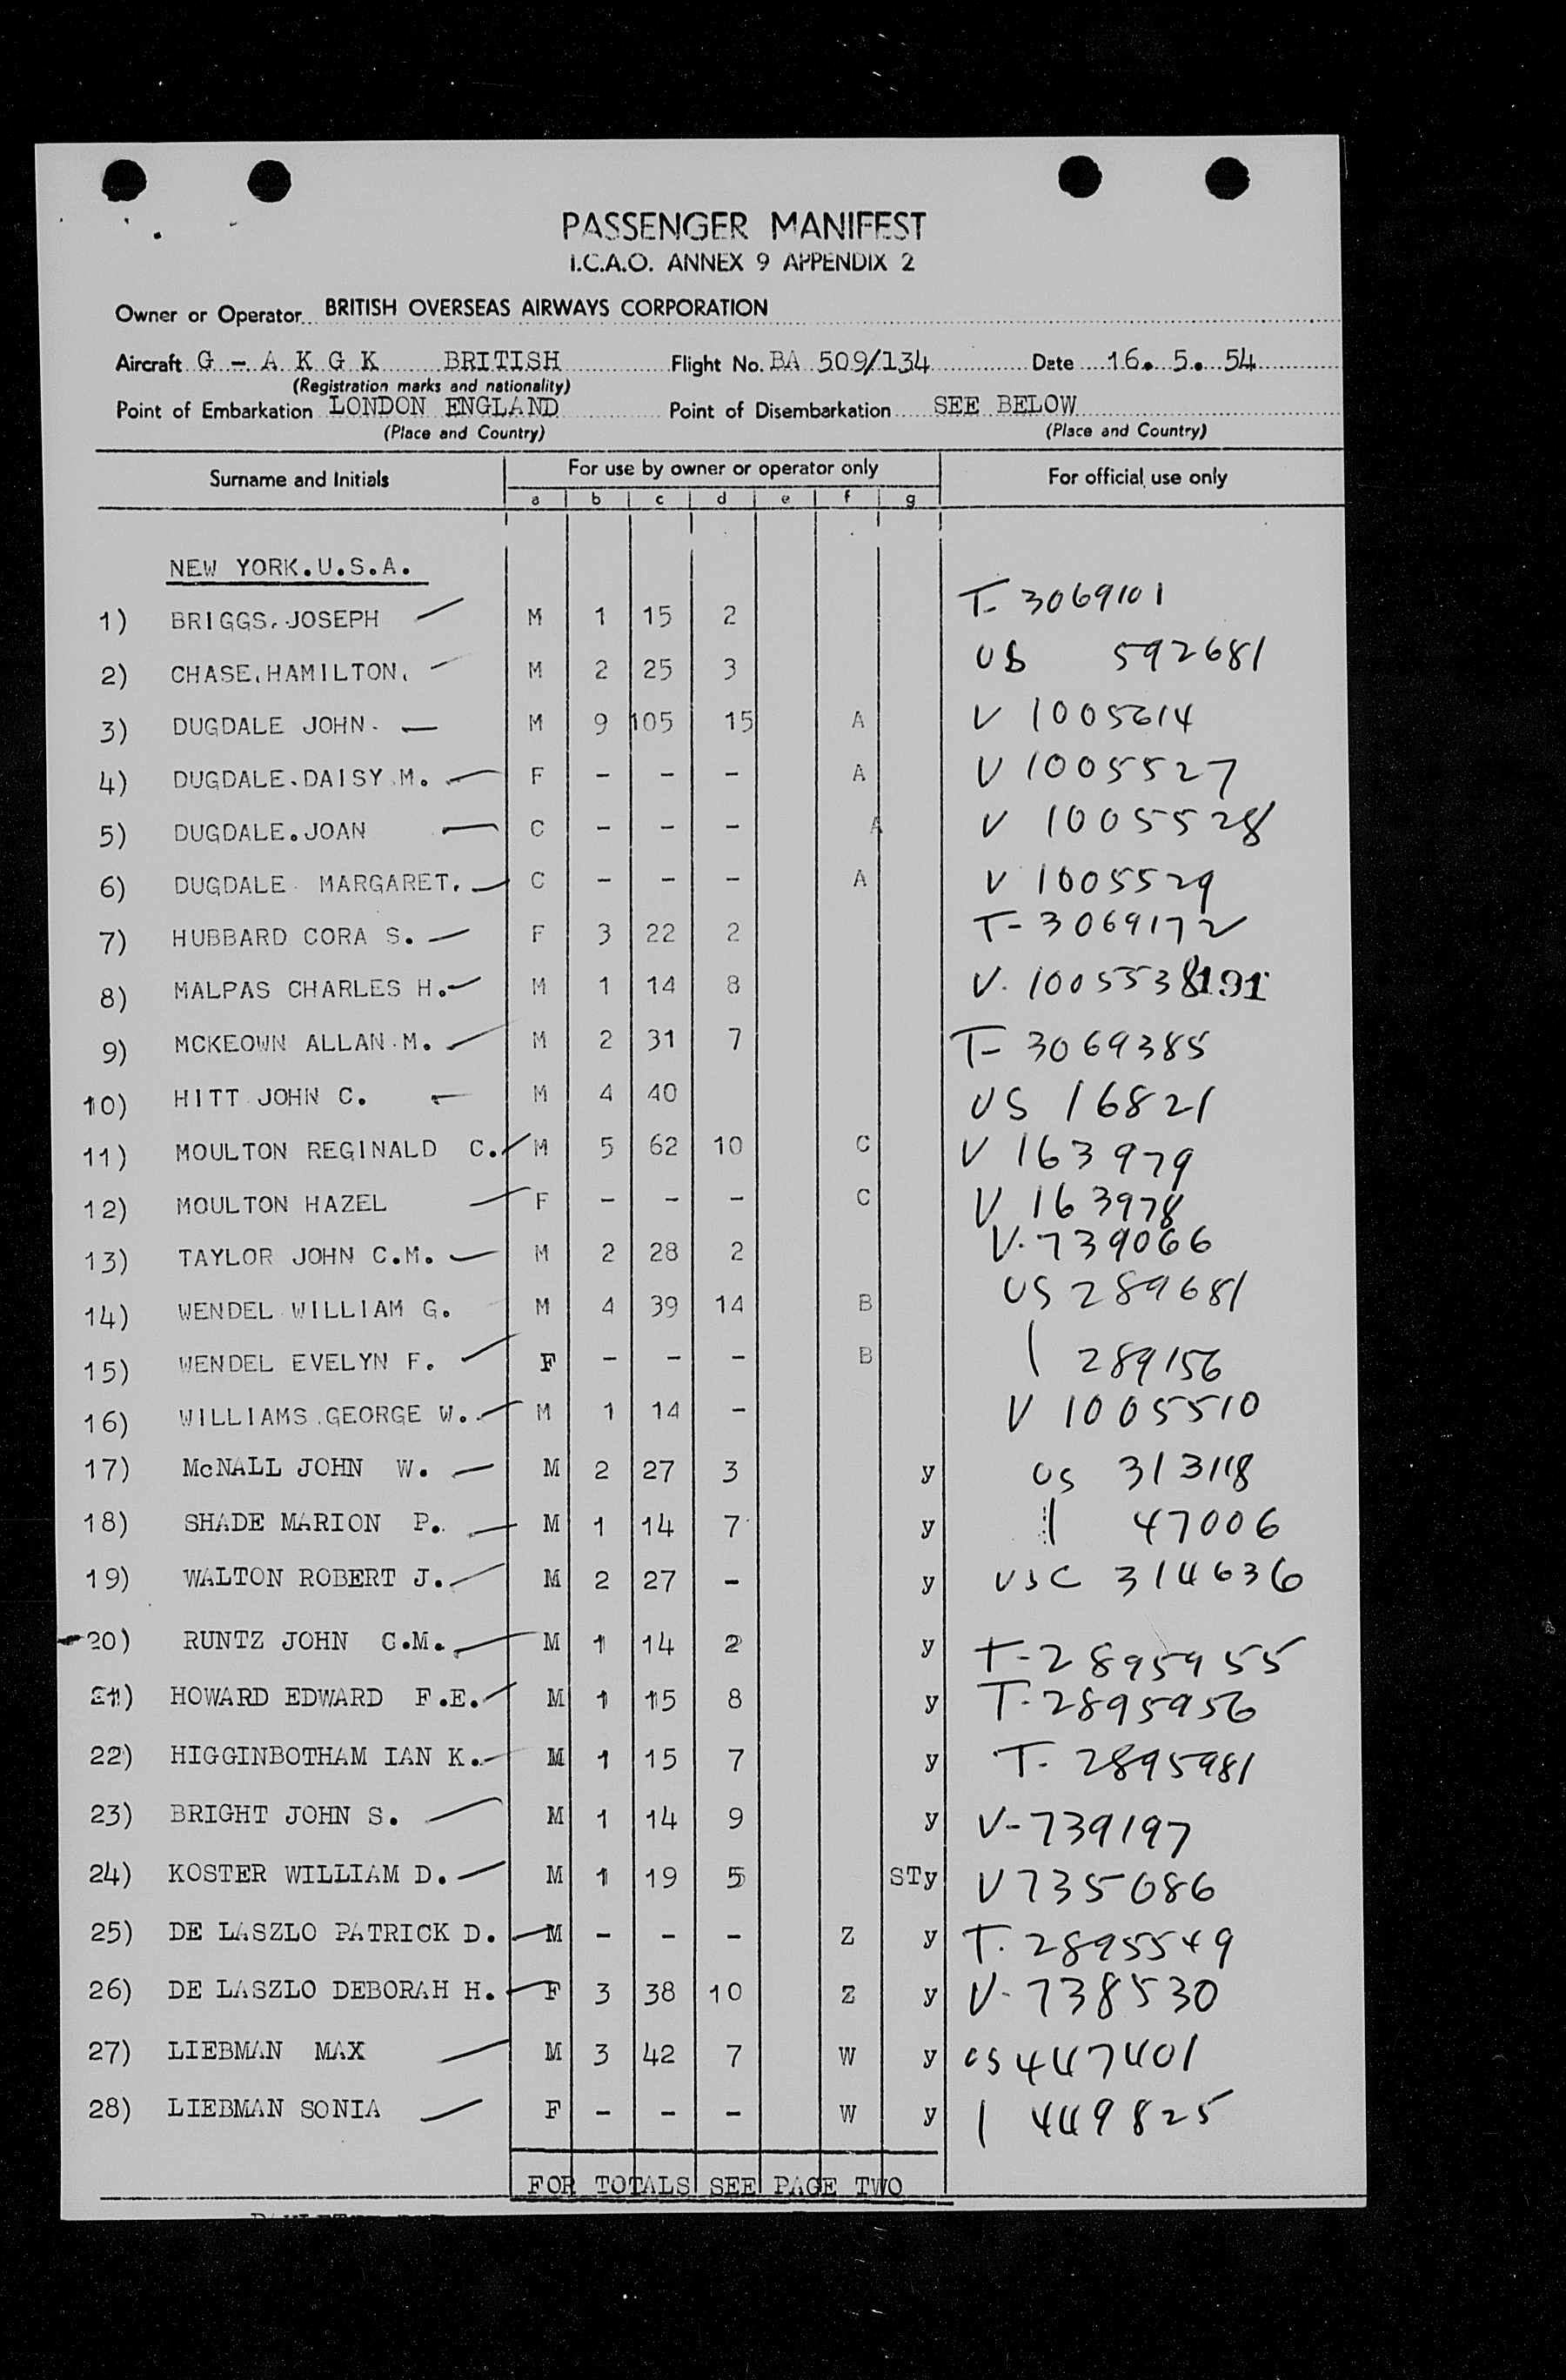 PASSENGER MANIFEST
I.C.A.O. ANNEX 9 APPENDIX 2
Owner or Operator BRITISH OVERSEAS AIRWAYS CORPORATION
Aircraft G - A K G K BRITISH Flight No. BA 509/134 Date 16. 5. 54
(Registration marks and nationality)
Point of Embarkation LONDON ENGLAND Point of Disembarkation SEE BELOW
(Place and Country) (Place and Country)
Surname and Initials For use by owner or operator only For official use only
a b c d e f g
NEW YORK.U.S.A.
1) BRIGGS.JOSEPH M 1 15 2 T- 3069101
2) CHASE.HAMILTON. M 2 25 3 US 592681
3) DUGDALE JOHN. M 9 105 15 A V 1005614
4) DUGDALE.DAISY M. F - - - A V 1005527
5) DUGDALE.JOAN C - - - A V 1005528
6) DUGDALE MARGARET. C - - - A V 1005529
7) HUBBARD CORA S. F 3 22 2 T- 3069172
8) MALPAS CHARLES H. M 1 14 8 V. 1005538191
9) MCKEOWN ALLAN M. M 2 31 7 T- 3069385
10) HITT JOHN C. M 4 40 US 16821
11) MOULTON REGINALD C. M 5 62 10 C V 163979
12) MOULTON HAZEL F - - - C V 163978
13) TAYLOR JOHN C.M. M 2 28 2 V. 739066
14) WENDEL WILLIAM G. M 4 39 14 B US 289681
15) WENDEL EVELYN F. F - - - B | 289156
16) WILLIAMS GEORGE W. M 1 14 - V 1005510
17) McNALL JOHN W. M 2 27 3 y US 313118
18) SHADE MARION P. M 1 14 7 y | 47006
19) WALTON ROBERT J. M 2 27 - y USC 314636
20) RUNTZ JOHN C.M. M 1 14 2 y T-2895955
21) HOWARD EDWARD F.E. M 1 15 8 y T-2895956
22) HIGGINBOTHAM IAN K. M 1 15 7 y T- 2895981
23) BRIGHT JOHN S. M 1 14 9 y V-739197
24) KOSTER WILLIAM D. M 1 19 5 STy V735086
25) DE LASZLO PATRICK D. M - - - Z y T. 2895549
26) DE LASZLO DEBORAH H. F 3 38 10 Z y V- 738530
27) LIEBMAN MAX M 3 42 7 W y US 447401
28) LIEBMAN SONIA F - - - W y | 449825
FOR TOTALS SEE PAGE TWO